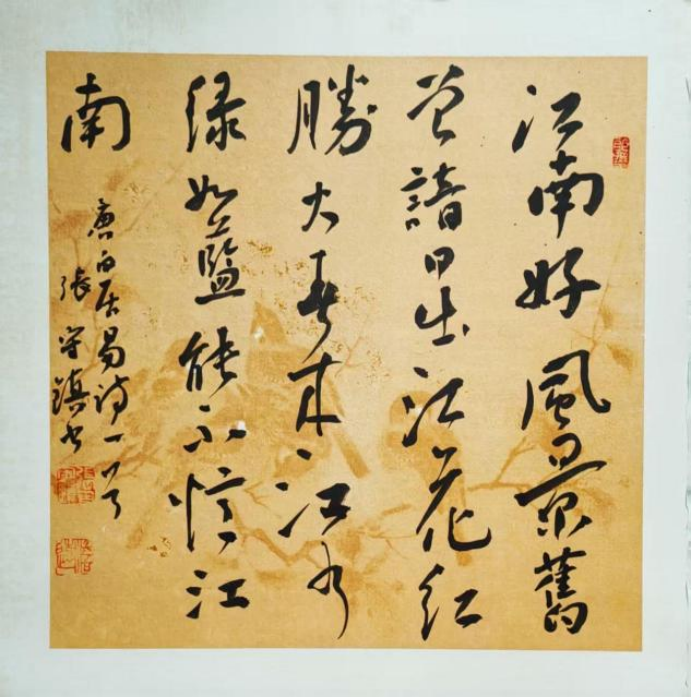 江南好風景舊
曾諳日出江花紅
勝火春來江水
緑如藍能不憶江
南
唐白居易詩一首
張守鎮書